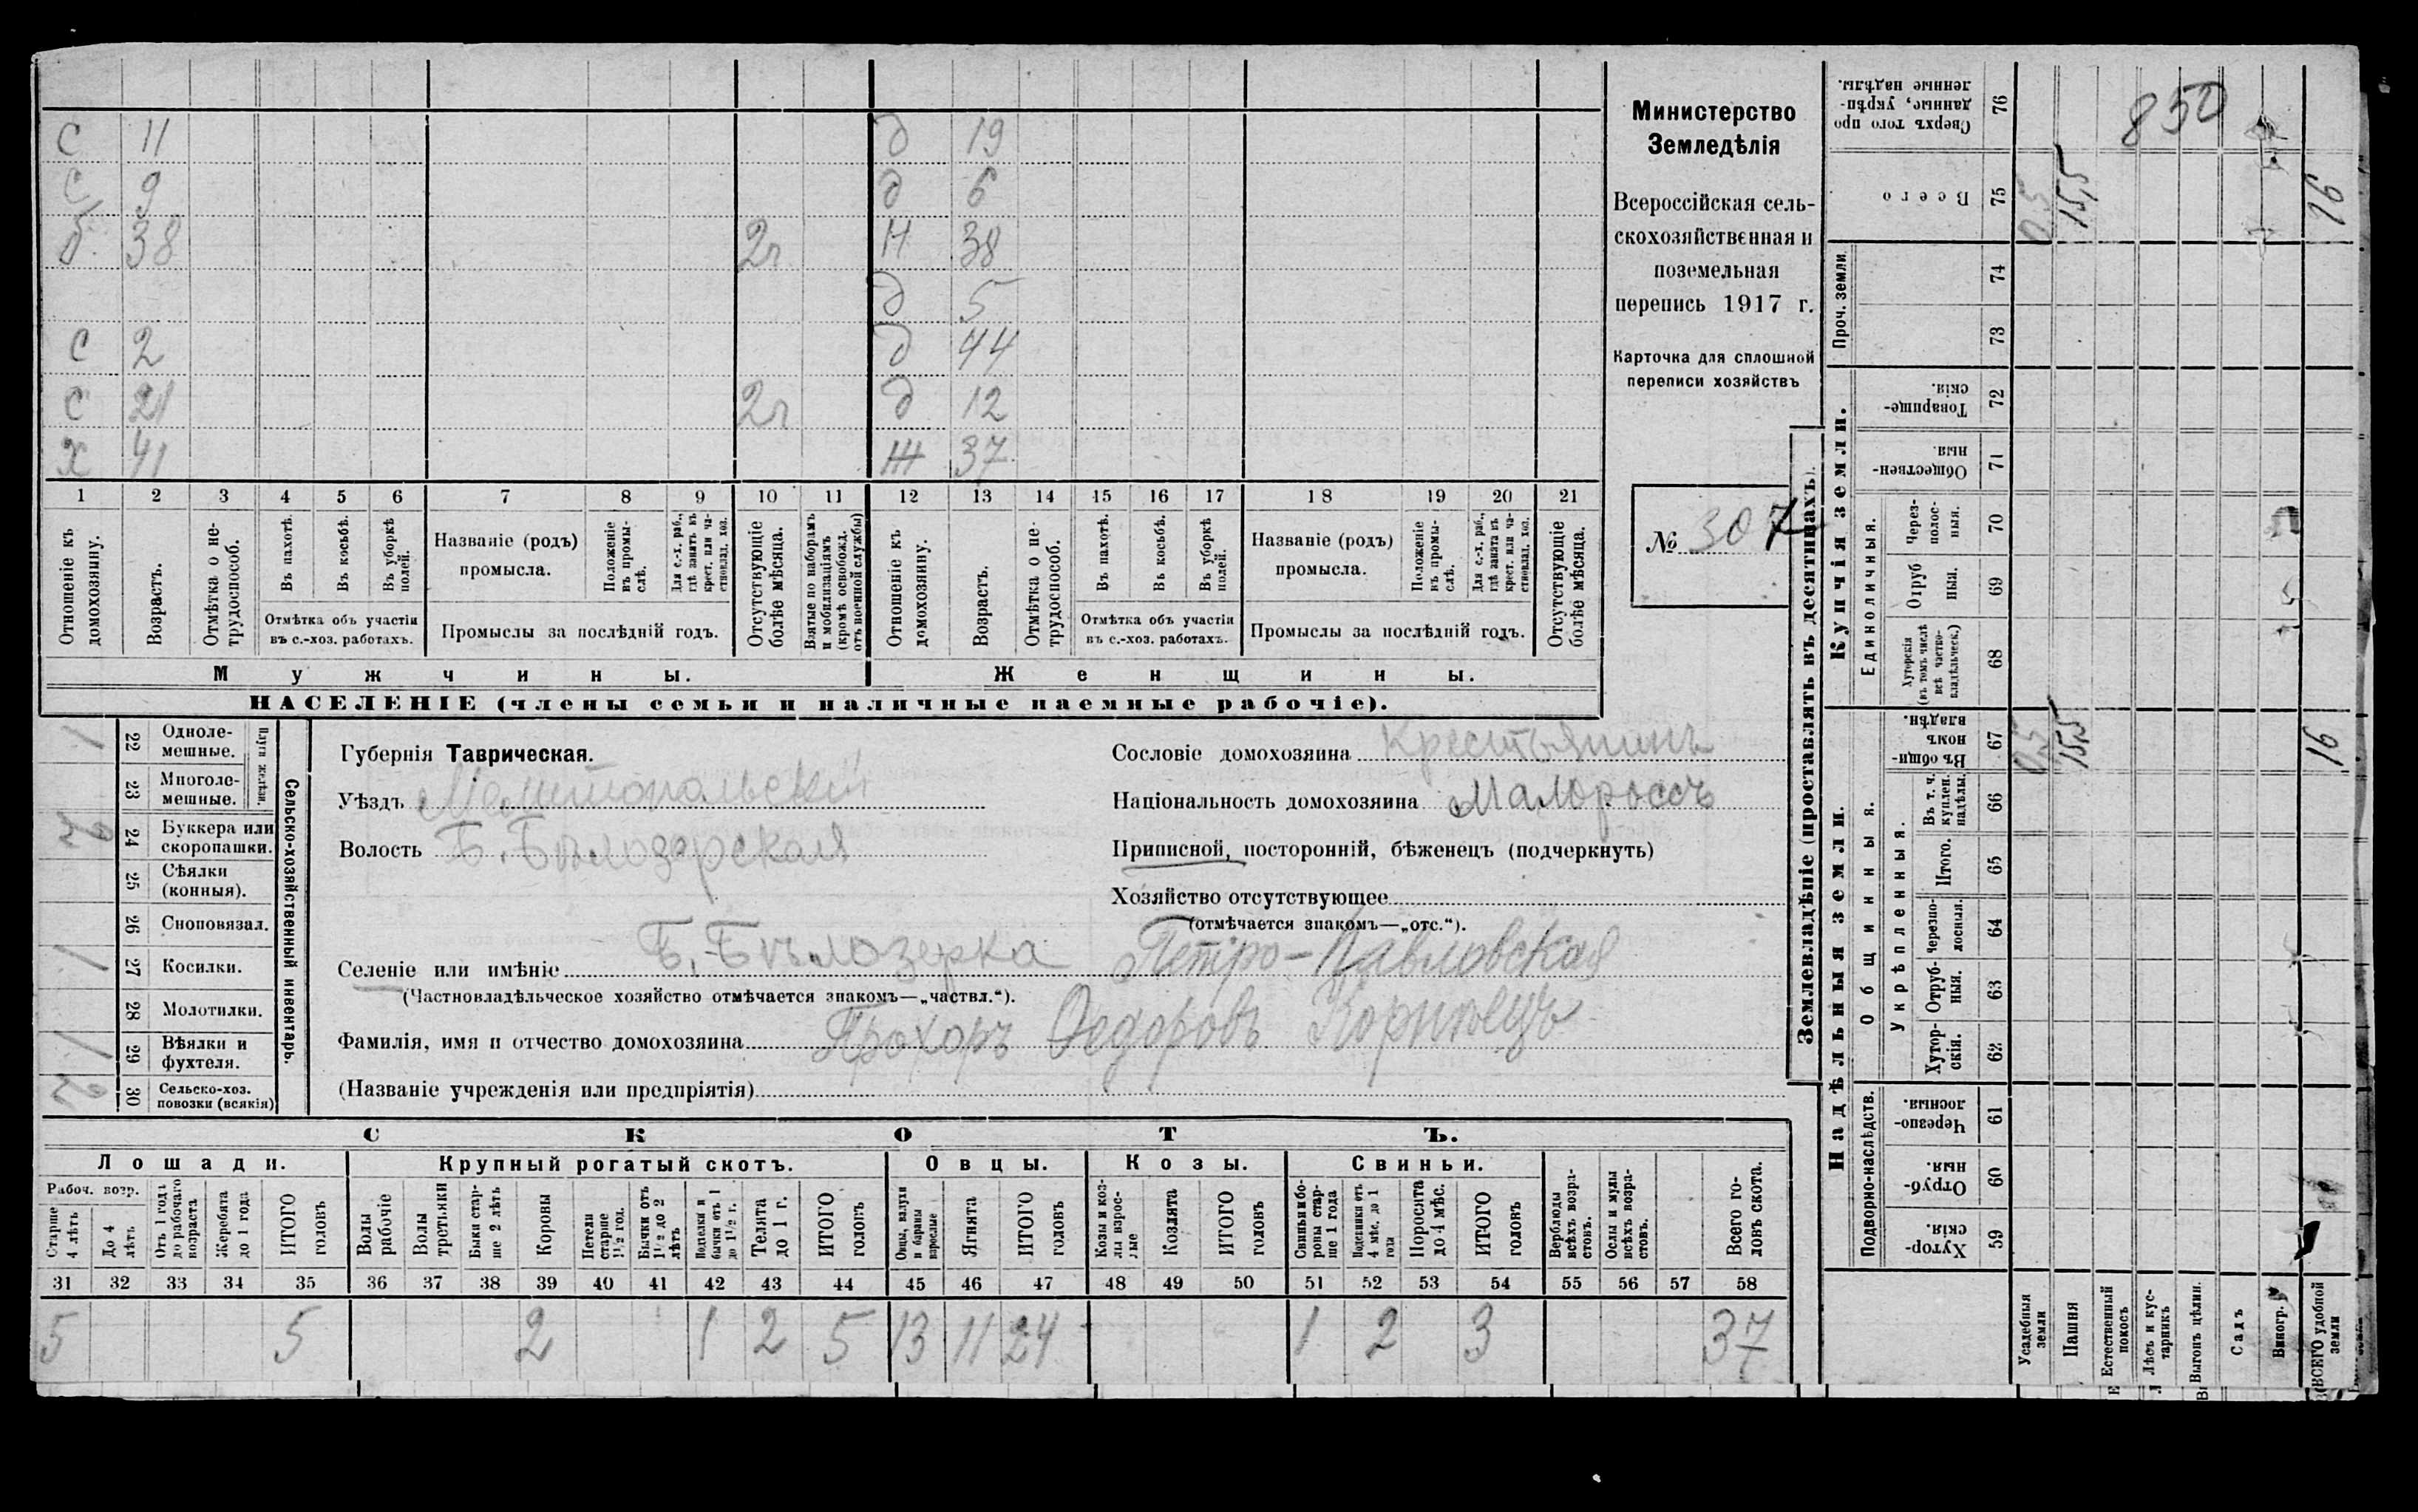 с 11 д 19
с 9 д 6
б. 38 2г Н 38
д 5
с 2 д 44
с 21 2г д 12
х 41 Ж 37
1 2 3 4 5 6 7 8 9 10 11 12 13 14 15 16 17 18 19 20 21
Отношеніе къ домохозяину.
Возрастъ.
Отмѣтка о не-трудоспособ.
Въ пахотѣ.
Въ косьбѣ.
Въ уборкѣ полей.
Отмѣтка объ участіи
въ с.-хоз. работахъ.
Названіе (родъ)
промысла.
Положеніе въ промы-слѣ.
Для с.-х. раб., гдѣ занятъ въ крест. или ча-стновлад. хоз.
Промыслы за послѣдній годъ.
Отсутствующіе болѣе мѣсяца.
Взятые по наборамъ и мобилизаціямъ (кромѣ освобожд. отъ военной службы)
Отношеніе къ домохозяину.
Возрастъ.
Отмѣтка о не-трудоспособ.
Въ пахотѣ.
Въ косьбѣ.
Въ уборкѣ полей.
Отмѣтка объ участіи
въ с.-хоз. работахъ.
Названіе (родъ)
промысла.
Положеніе въ промы-слѣ.
Для с.-х. раб., гдѣ занята въ крест. или ча-стновлад. хоз.
Промыслы за послѣдній годъ.
Отсутствующіе болѣе мѣсяца.
Мужчины.
Женщины.
НАСЕЛЕНІЕ (члены семьи и наличные наемные рабочіе).
Министерство
Земледѣлія
Всероссійская сель-
скохозяйственная и
поземельная
перепись 1917 г.
Карточка для сплошной
переписи хозяйствъ
№ 307
1 22 Одноле-мешные.
23 Многоле-мешные.
Плуги желѣзн.
2 24 Буккера или скоропашки.
25 Сѣялки (конныя).
26 Сноповязал.
1 27 Косилки.
28 Молотилки.
1 29 Вѣялки и фухтеля.
2 30 Сельско-хоз. повозки (всякія)
Сельско-хозяйственный инвентарь.
Губернія Таврическая.
Уѣздъ Мелитопольскій
Волость Б. Бѣлозерская
Сословіе домохозяина Крестьянинъ
Національность домохозяина Малороссъ
Приписной, посторонній, бѣженецъ (подчеркнуть)
Хозяйство отсутствующее
(отмѣчается знакомъ—„отс.“).
Селеніе или имѣніе Б. Бѣлозерка Петро-Павловская
(Частновладѣльческое хозяйство отмѣчается знакомъ—„частвл.“).
Фамилія, имя и отчество домохозяина Прохоръ Ѳедоровъ Корніецъ
(Названіе учрежденія или предпріятія)
СКОТЪ.
Лошади. Крупный рогатый скотъ. Овцы. Козы. Свиньи.
Рабоч. возр.
Старше 4 лѣтъ
До 4 лѣтъ
Отъ 1 годъ до рабочаго возраста
Жеребята до 1 года
ИТОГО головъ
Волы рабочіе
Волы третьяки
Быки стар-ше 2 лѣтъ
Коровы
Нетели старше 1½ год.
Бычки отъ 1½ до 2 лѣтъ
Водтелки и бычки отъ 1 до 1½ г.
Телята до 1 г.
ИТОГО головъ
Овцы, валухи и бараны взрослые
Ягнята
ИТОГО головъ
Козы и коз-лы взрос-лые
Козлята
ИТОГО головъ
Свиньи и бо-ровы стар-ше 1 года
Подсвинки отъ 4 мѣс. до 1 года
Поросята до 4 мѣс.
ИТОГО головъ
Верблюды всѣхъ возра-стовъ.
Ослы и мулы всѣхъ возра-стовъ.
Всего го-ловъ скота.
31 32 33 34 35 36 37 38 39 40 41 42 43 44 45 46 47 48 49 50 51 52 53 54 55 56 57 58
5 5 2 1 2 5 13 11 24 1 2 3 37
Землевладѣніе (проставлять въ десятинахъ).
Надѣльныя земли.
Купчія земли.
Проч. земли.
Подворно-наслѣдств.
Общинныя.
Укрѣпленныя.
Единоличныя.
76 Сверхъ того про данные, укрѣп-ленные надѣлы. 850
75 Всего 0,5 15,5 16
74
73
72 Товарище-скія.
71 Обществен-ныя.
70 Через-полос-ныя.
69 Отруб ныя.
68 Хуторскія (въ томъ числѣ всѣ частно-владѣльческ.)
67 Въ общи-номъ владѣн. 0,5 15,5 16
66 Въ т. ч. куплен. надѣлы.
65 Итого.
64 Черезпо-лосныя.
63 Отруб-ныя.
62 Хутор-скія.
61 Черезпо-лосныя.
60 Отруб-ныя.
59 Хутор-скія.
Усадебныя земли
Пашня
Естественный покосъ
Лѣсъ и кус-тарникъ
Выгонъ цѣлин.
Садъ
Виногр.
ВСЕГО удобной земли